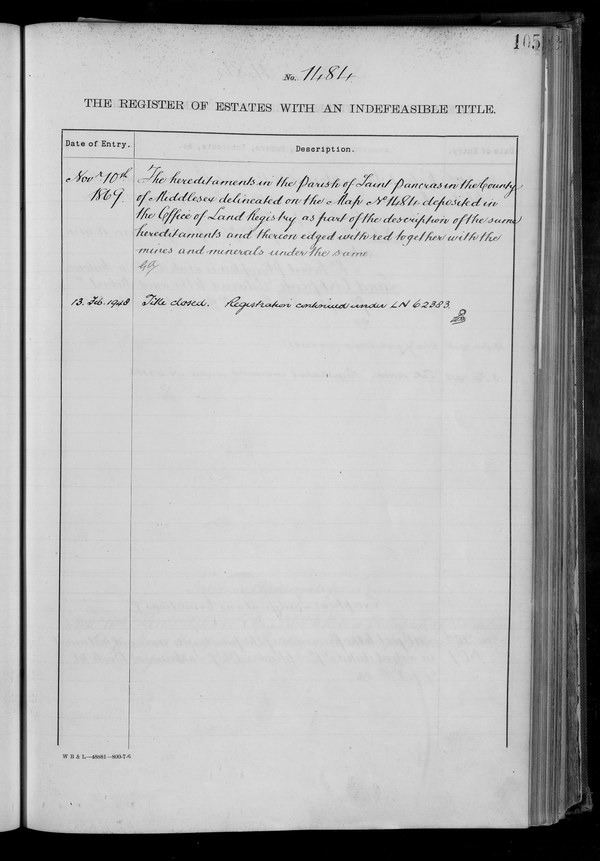 105
No. 1484
THE REGISTER OF ESTATES WITH AN INDEFEASIBLE TITLE.
Date of Entry. Description.
Novr 10th The hereditaments in the Parish of Saint Pancras in the County
1869 of Middlesex delineated on the Map No 1484 deposited in
the Office of Land Registry as part of the description of the same
hereditaments and thereon edged with red together with the
mines and minerals under the same
13. Feb. 1948 Title closed. Registration continued under LN 62383.
W B & L—48881—800-7-6